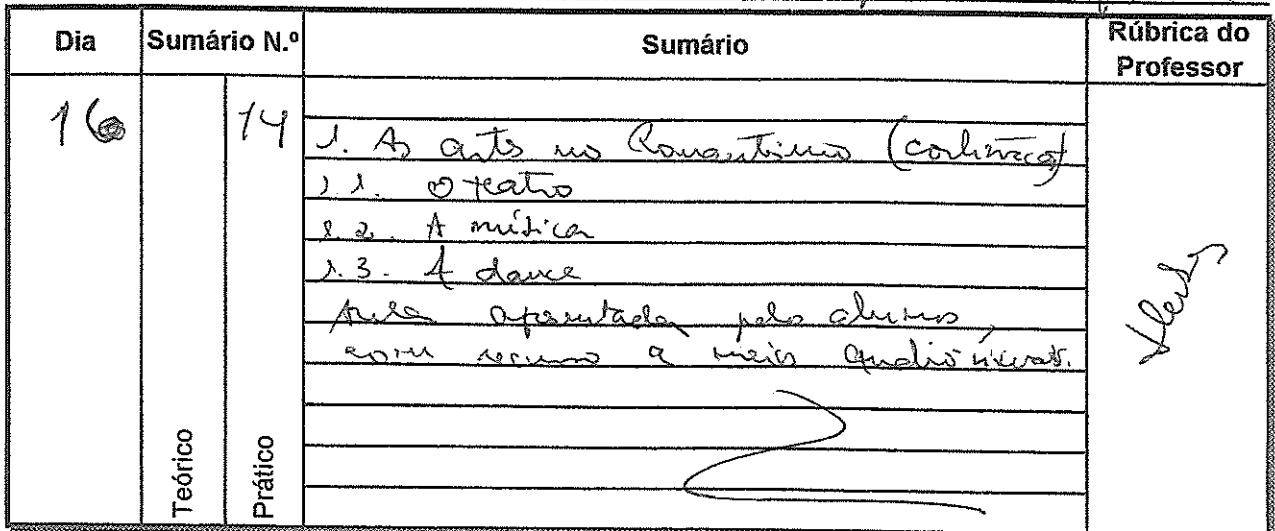 Dia Sumário N.º Sumário Rúbrica do Professor
16 14
1. As artes no Romantismo (continuação)
1.1. O teatro
1.2. A música
1.3. A dança
Aula apresentada pelos alunos,
com recurso a meios audiovisuais.
Teórico Prático